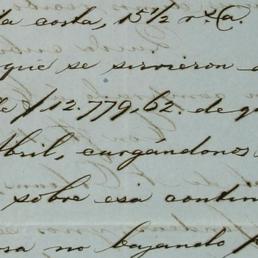 la costa, 15½ rs. A.
que se sirvieron
$12.779,62. de
Abril, cargándonos
sobre esa contin
no bajando